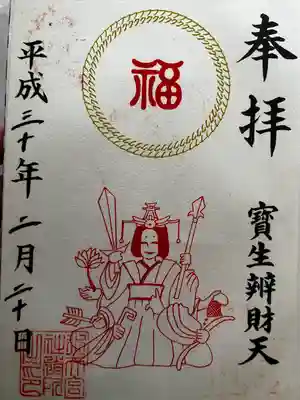 奉拝
寶生辨財天
福
平成三十年二月二十日